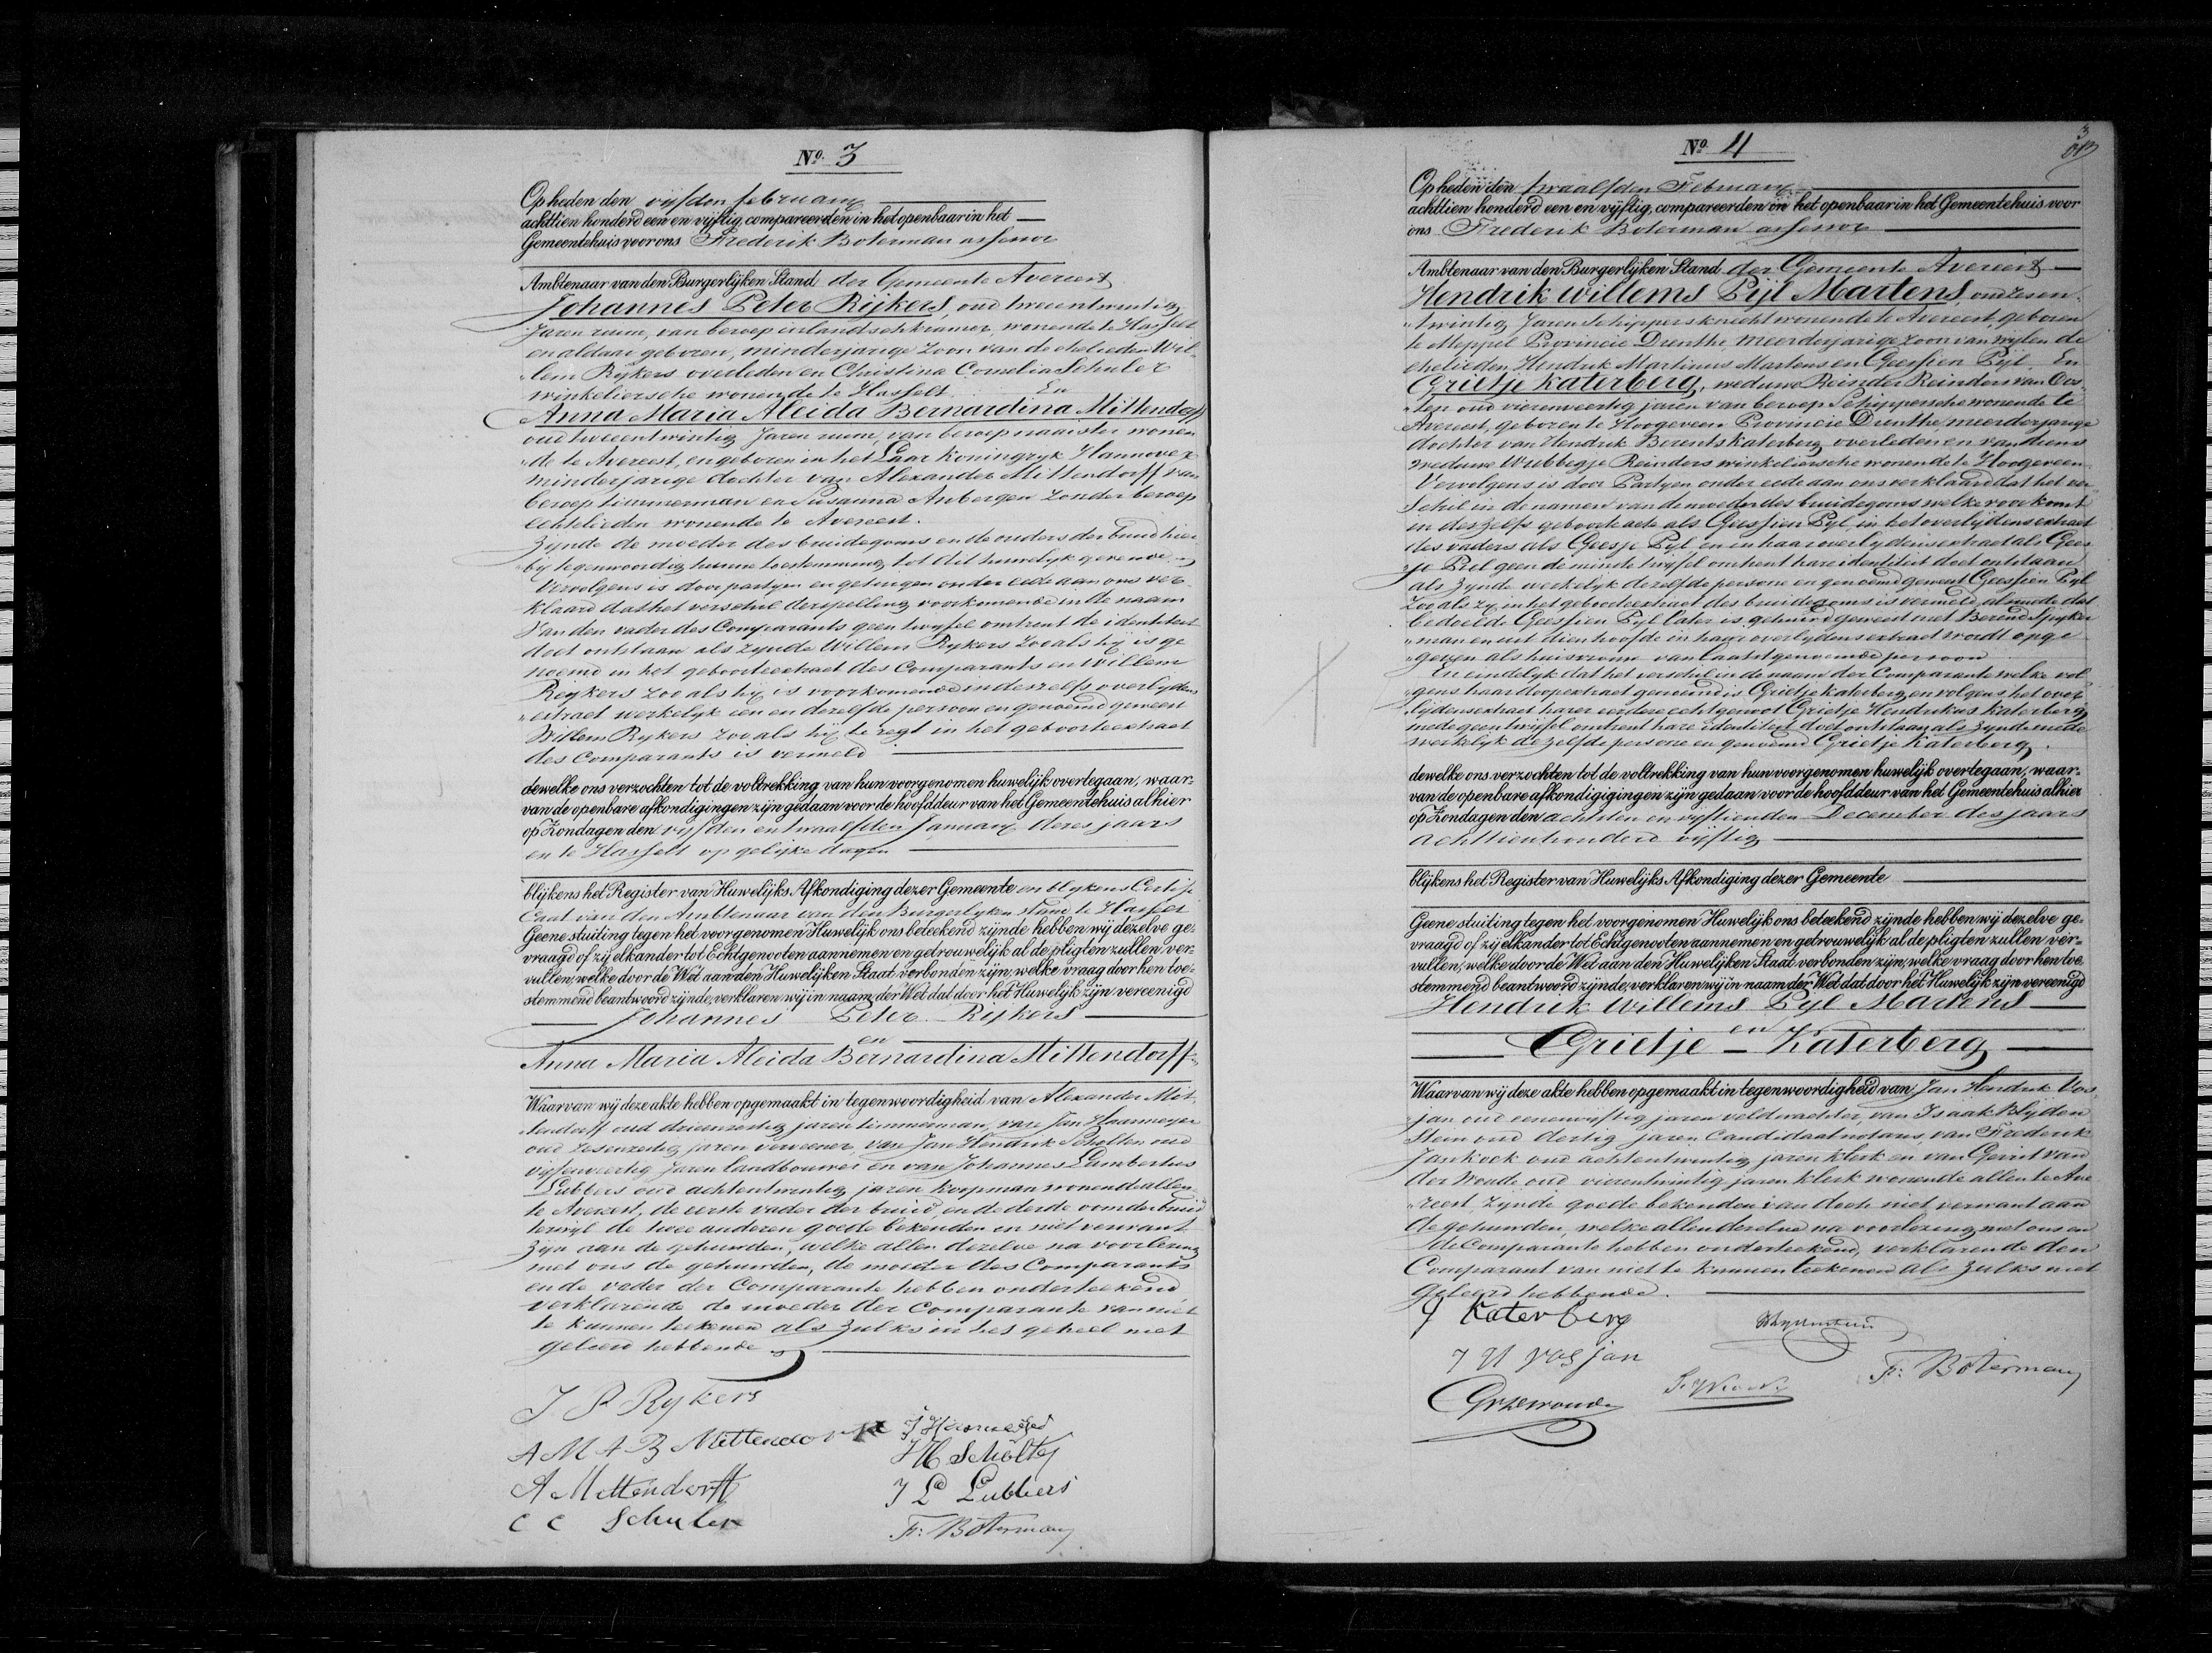 No. 3
Op heden den vijfden februarij
achttien honderd een en vijftig compareerden in het openbaar in het
Gemeentehuis voor ons Frederik Boterman assessor
Ambtenaar van den Burgerlijken Stand der Gemeente Avereest
Johannes Peter Rijkers, oud tweentwintig
Jaren ruim, van beroep inlandschkramer, wonende te Hasselt
en aldaar geboren, minderjarige zoon van de echelieden Wil„
„lem Rijkers overleden en Christina Cornelia Schuler
winkeliersche wonende te Hasselt En
Anna Maria Aleida Bernardina Mittendorff
oud tweentwintig Jaren ruim, van beroep naaister wonen
„de te Avereest, en geboren in het Laar koningryk Hannover
minderjarige dochter van Alexander Mittendorff van
beroep timmerman en Susanna Anbergen zonder beroep
echtelieden wonende te Avereest.
Zijnde de moeder des bruidegoms en de ouders der bruid hier
„bij tegenwoordig hunne toestemming tot dit huwelyk gevende
Vervolgens is door partyen en getuigen onder eede aan ons ver„
klaard dat het verschil der spelling voorkomende in de naam
van den vader des Comparants geen twyfel omtrent de identiteit
doet ontstaan als zynde Willem Rykers zoo als hij is ge
noemd in het geboorteextract des Comparants en Willem
Reijkers zoo als hij is voorkomende in deszelfs overlydens
„extract werkelyk een en dezelfde persoon en genoemd geweest
Willem Rykers zoo als hij te regt in het geboorteextract
des Comparants is vermeld
dewelke ons verzochten tot de voltrekking van hun voorgenomen huwelijk overtegaan, waar-
van de openbare afkondigingen zijn gedaan voor de hoofddeur van het Gemeentehuis alhier
op Zondagen den vijfden en twaalfden Januarij dezes jaars
en te Hasselt op gelijke dagen
blijkens het Register van Huwelijks Afkondiging dezer Gemeente en blykens Certifi
Caat van den Ambtenaar van den Burgerlyken stand te Hasselt
Geene stuiting tegen het voorgenomen Huwelijk ons beteekend zijnde hebben wij dezelve ge-
vraagd of zij elkander tot Echtgenooten aannemen en getrouwelijk al de pligten zullen ver-
vullen, welke door de Wet aan den Huwelijken Staat verbonden zijn, welke vraag door hen toe-
stemmend beantwoord zijnde, verklaren wij in naam der Wet dat door het Huwelijk zijn vereenigd
Johannes Peter Rijkers
en
Anna Maria Aleida Bernardina Mittendorff
Waarvan wij deze akte hebben opgemaakt in tegenwoordigheid van Alexander Mit„
„tendorff oud drieenzestig jaren timmerman, van Jan Haarmeyer
oud zesenzestig jaren vervener, van Jan Hendrik Scholten oud
vijfenveertig Jaren landbouwer en van Johannes Lambertus
Lubbers oud achtentwintig jaren koopman wonende allen
te Avereest, de eerste vader der bruid, en de derde oom der bruid
terwijl de twee anderen goede bekenden en niet verwant
Zijn aan de gehuwden, welke allen dezelve na voorlezing
met ons de gehuwden, de moeder des Comparants
en de vader der Comparante hebben onderteekend
verklarende de moeder der comparante van niet
te kunnen teekenen als zulks in het geheel niet
geleerd hebbende
J P Rykers
A M A B Mittendorff J Haarmeijer
A Mittendorff JH Scholten
C C Schuler J L Lubbers
Fr: Boterman
No. 4
3
Op heden den twaalfden Februarij
achttien honderd een en vijftig, compareerden in het openbaar in het Gemeentehuis voor
ons Frederik Boterman assessor
Ambtenaar van den Burgerlijken Stand der Gemeente Avereest
Hendrik Willems Pijl Martens, oud zesen„
„twintig Jaren Schippersknecht wonende te Avereest, geboren
te Meppel Provincie Drenthe meerderjarige zoon van wylen de
echelieden Hendrik Martinus Martens en Geessien Pijl. En
Grietje Katerberg, weduwe Reinder Reinders van Oos„
„ten oud vierenveertig jaren van beroep Schippersche wonende te
Avereest, geboren te Hoogeveen Provincie Drenthe, meerderjarige
dochter van Hendrik Berents Katerberg overleden en van diens
weduwe Wubbegje Reinders winkeliersche wonende te Hoogeveen
Vervolgens is door Partyen onder eede aan ons verklaard dat het ver
Schil in de namen van de moeder des bruidegoms welke voorkomt
in deszelfs geboorteacte als Geessien Pyl in het overlijdensextract
des vaders als Geesje Pijl en in haar overlydensextract als Gees
„je Piel geen de minste twyfel omtrent hare identiteit doet ontstaan
als zynde werkelijk dezelfde persone en genoemd geweest Geessien Pyl
zoo als zy in het geboorteextract des bruidegoms is vermeld, alsmede dat
bedoelde Geessien Pyl later is gehuwd geweest met Berend Spyker
„man en uit dien hoofde in haar overlydensextract wordt opge
„geven als huisvrouw van laastgenoemde persoon
En eindelyk dat het verschil in de naam der Comparante welke vol
„gens haar doopextract genoemd is Grietje Katerberg en volgens het over
„lijdensextract harer eerdere echtgenoot Grietje Hendrikus Katerberg
mede geen twijfel omtrent hare identiteit doet ontstaan als zynde mede
werkelyk dezelfde persone en genoemd Grietje Katerberg.
dewelke ons verzochten tot de voltrekking van hun voorgenomen huwelijk overtegaan, waar-
van de openbare afkondigigingen zijn gedaan voor de hoofddeur van het Gemeentehuis alhier
op Zondagen den achtsten en vyftienden December des jaars
achttienhonderd vijftig
blijkens het Register van Huwelijks Afkondiging dezer Gemeente
Geene stuiting tegen het voorgenomen Huwelijk ons beteekend zijnde hebben wij dezelve ge-
vraagd of zij elkander tot Echtgenooten aannemen en getrouwelijk al de pligten zullen ver-
vullen, welke door de Wet aan den Huwelijken Staat verbonden zijn, welke vraag door hen toe
stemmend beantwoord zijnde, verklaren wij in naam der Wet dat door het Huwelijk zijn vereenigd
Hendrik Willems Pyl Martens
en
Grietje Katerberg
Waarvan wij deze akte hebben opgemaakt in tegenwoordigheid van Jan Hendrik Vos„
„jan oud eenenvijftig jaren veldwachter, van Isaak Blyden
Stein oud dertig jaren Candidaat notaris, van Frederik
Jan Kock oud achtentwintig jaren klerk en van Gerrit van
der Woude oud vierentwintig jaren klerk wonende allen te Ave
„reest, zynde goede bekenden van doch niet verwant aan
de gehuwden, welke allen dezelve na voorlezing met ons en
de Comparante hebben onderteekend, verklarende den
Comparant van niet te kunnen teekenen als zulks niet
geleerd hebbende.
G Katerberg
J H Vosjan
Fr: Boterman
GvDWoude